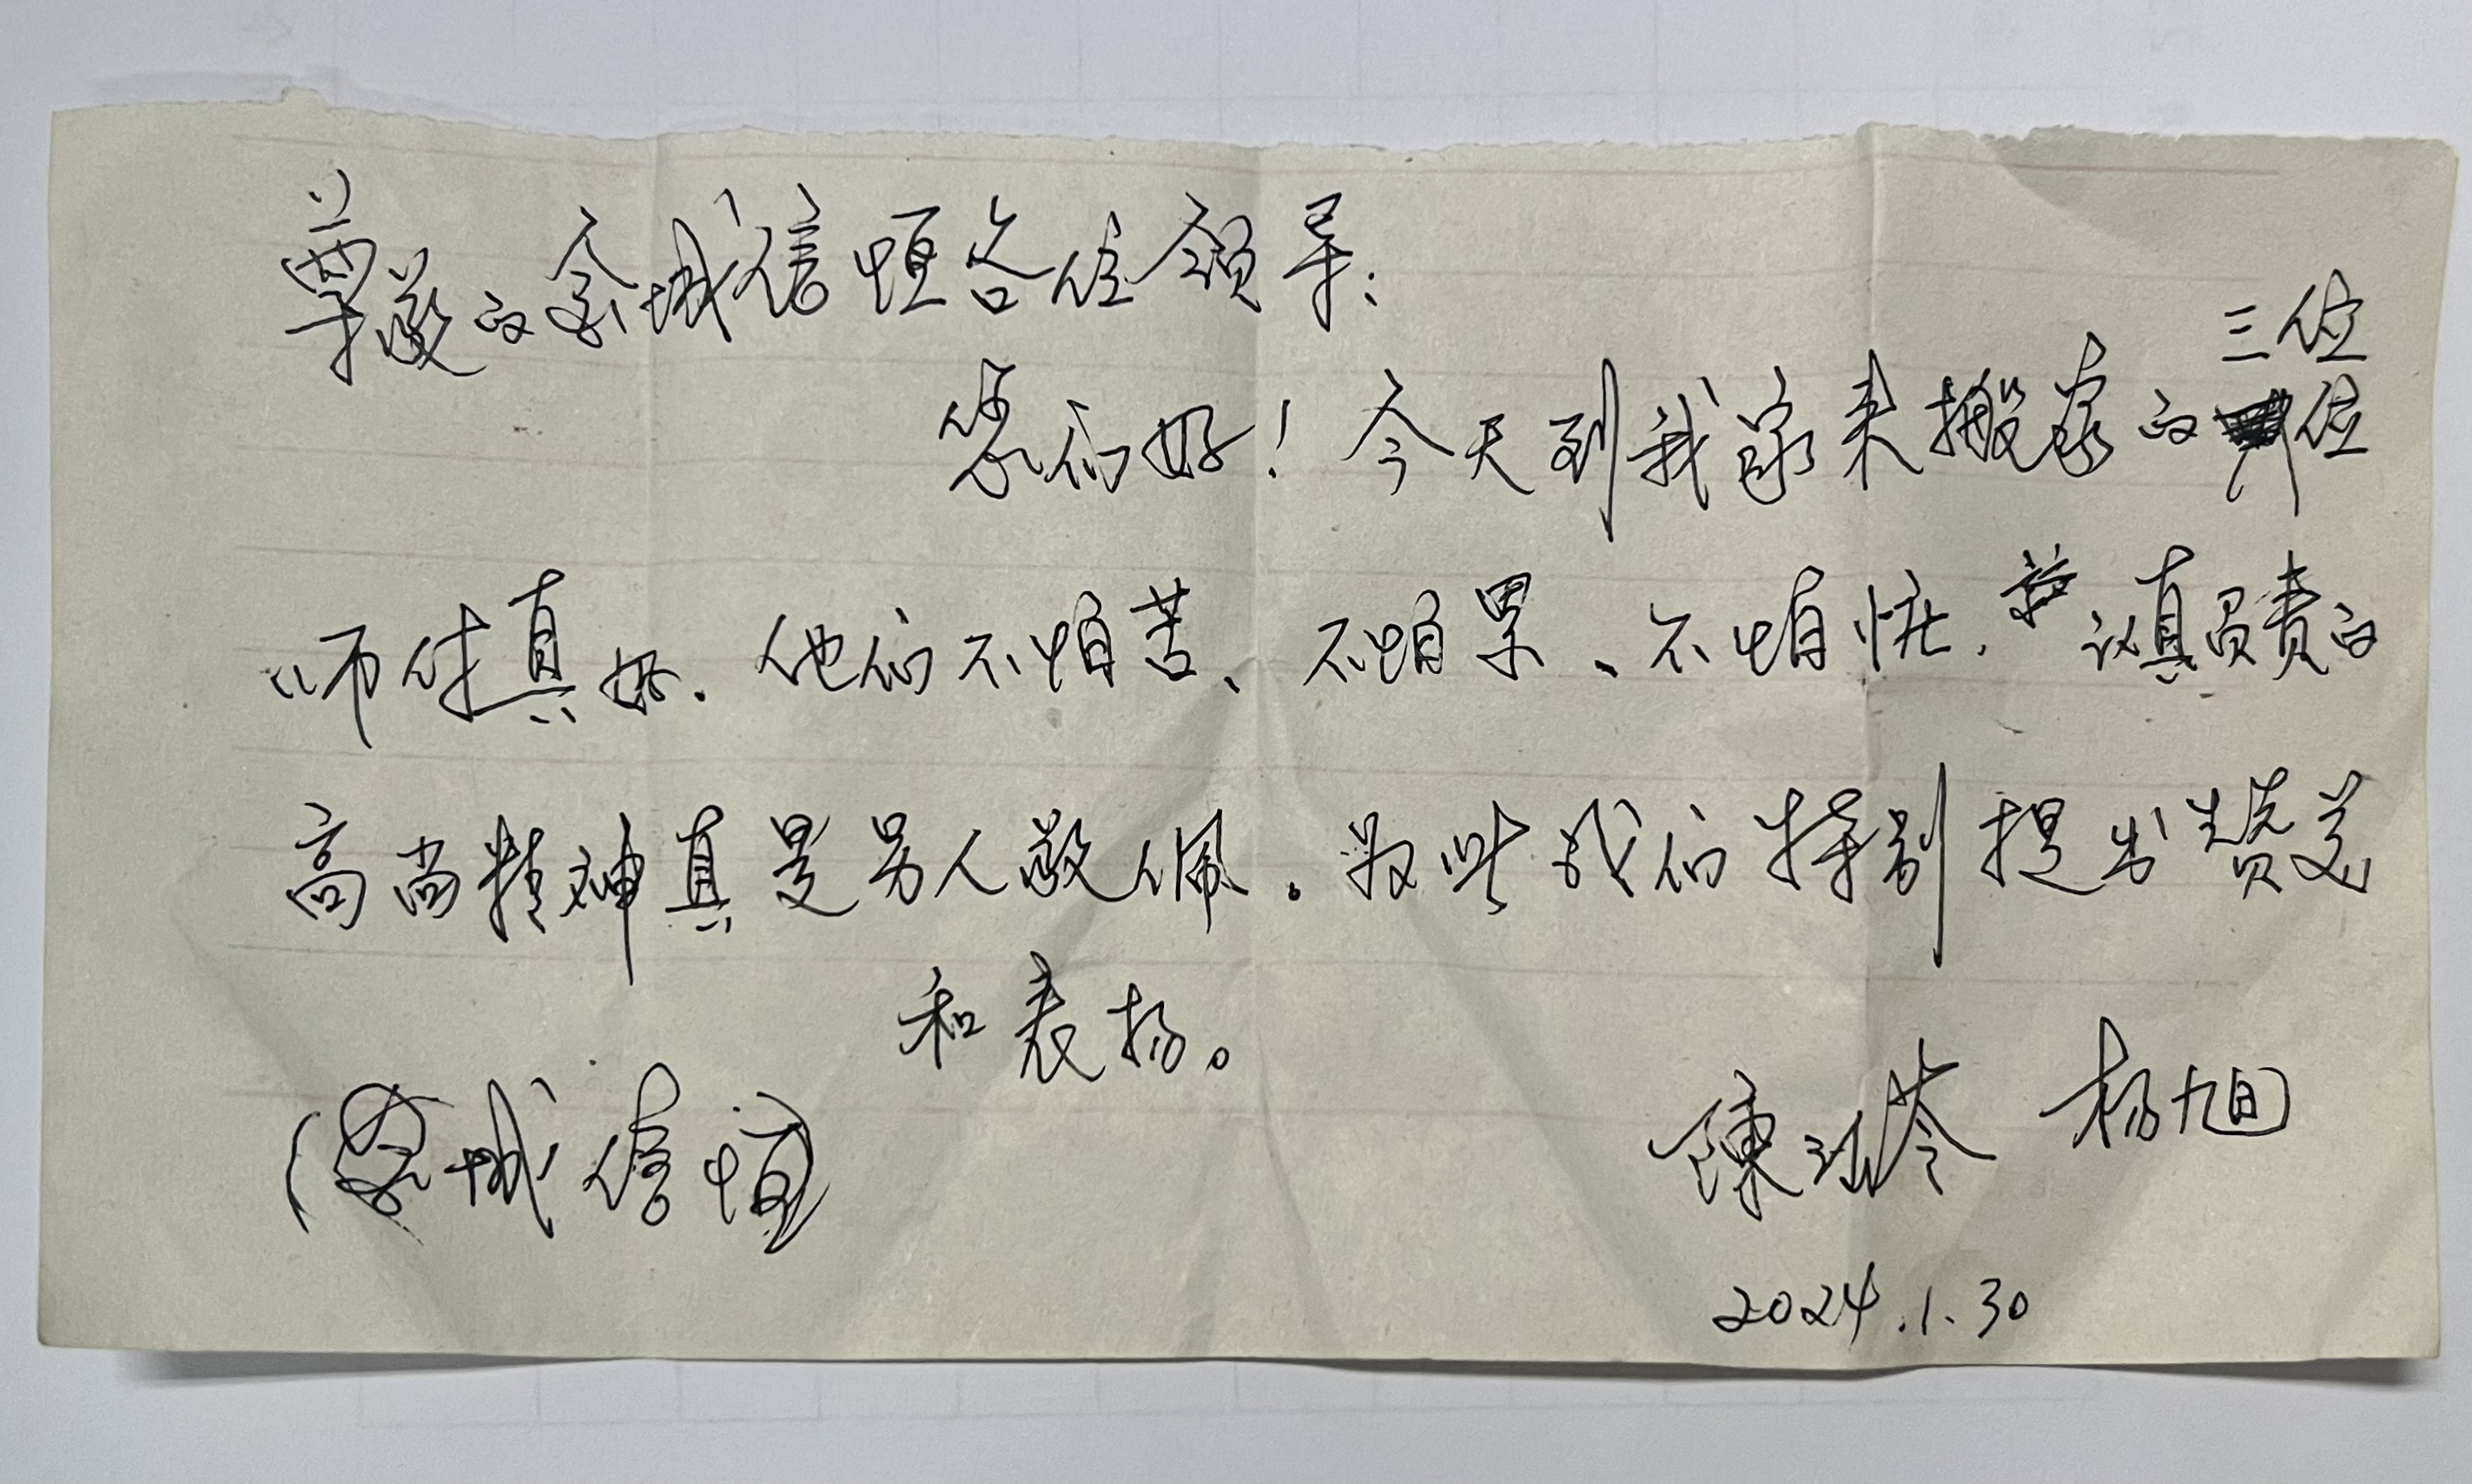 尊敬的金城信恒各位领导：
您们好！今天到我家来搬家的三位
师付真好.他们不怕苦、不怕累、不怕忙.认真负责的
高尚精神真是另人敬佩。为此我们特别提出赞美
和表扬。
(金城信恒)
陳 杨旭
2024.1.30